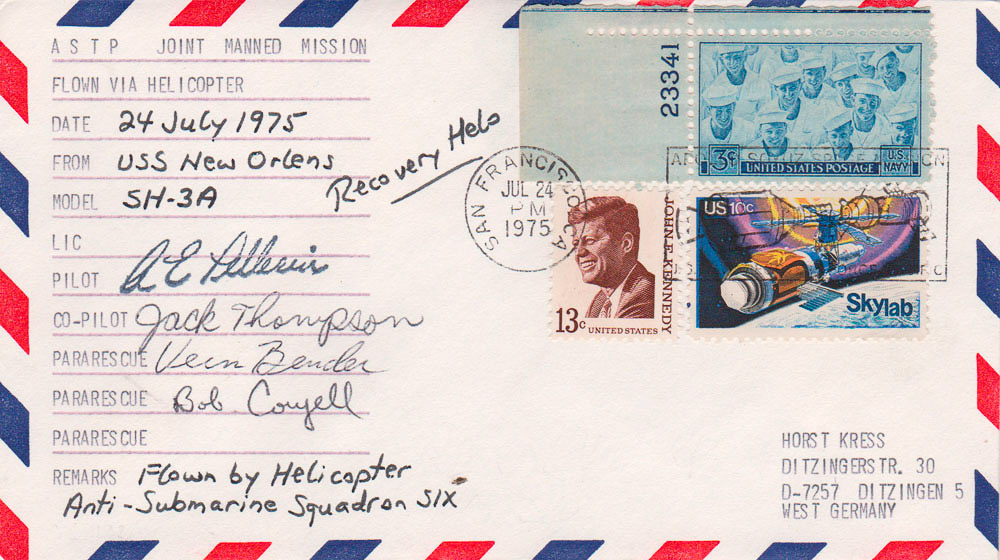 ASTP JOINT MANNED MISSION
FLOWN VIA HELICOPTER
DATE 24 July 1975
FROM USS New Orlens
MODEL SH-3A
Recovery Helo
LIC
PILOT A E
CO-PILOT Jack Thompson
PARARESCUE Vern Bender
PARARESCUE Bob Coryell
PARARESCUE
REMARKS Flown by Helicopter
Anti-Submarine Squadron SIX
23341
3¢ UNITED STATES POSTAGE U.S. NAVY
SAN FRANCISCO CA
JUL 24
PM
1975
13c UNITED STATES
JOHN F. KENNEDY
US 10c
Skylab
HORST KRESS
DITZINGERSTR. 30
D-7257 DITZINGEN 5
WEST GERMANY